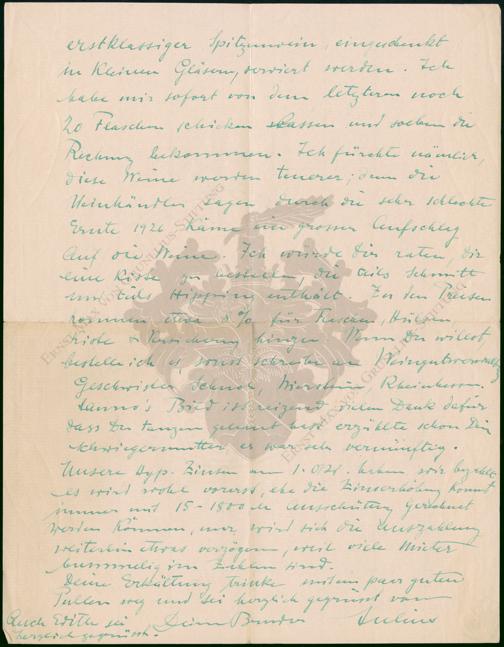 erstklassiger Spitzenwein, eingeschenkt
in kleinen Gläsern, serviert werden. Ich
habe mir sofort von dem letzteren noch
20 Flaschen schicken lassen und soeben die
Rechnung bekommen. Ich fürchte nämlich,
diese Weine werden teurer, denn die
Weinhändler sagen durch die sehr schlechte
Ernte 1926 käme ein grosser Aufschlag
auf die Weine. Ich würde Dir raten, dir
eine Kiste zu bestellen, die teils Schmitt
und teils Hipping enthält. Zu den Preisen
kommen etwa 8% für Flaschen, Hülsen,
Kiste & Versicherung hinzu. Wenn Du willst
bestelle ich es sonst schreibe an Weingutsverwaltg
Geschwister Schuch Nierstein Rheinhessen.
Bild ist reizend vielen Dank dafür
dass Du tanzen gelernt hast erzählte schon Din
Schwiegermutter, es war sehr vernünftig.
Unsere Hyp. Zinsen am 1. Okt. haben wir bezahlt
es wird wohl vorerst, ehe die Zinserhöhung kommt
immer mit 15-1800 M Ausschüttung gerechnet
werden können, nur wird sich die Auszahlung
weiterhin etwas verzögern, weil viele Mieter
bummelig im Zahlen sind.
Deine Erkältung trinke mit ein paar guten
Pullen weg und sei herzlich gegrüsst von
Auch Edith sei Deinem Bruder Julius
herzlich gegrüsst.
Ernst Max von Grunelius-Stiftung
Ernst Max von Grunelius-Stiftung